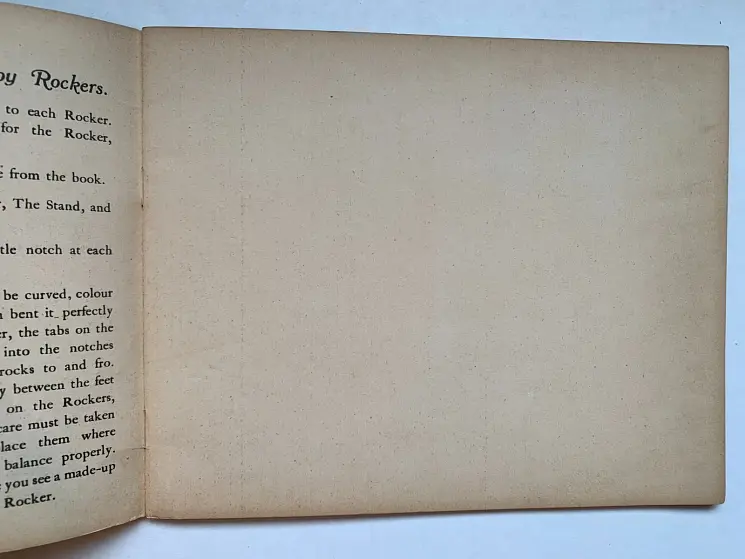 Rockers.
to each Rocker.
for the Rocker,
from the book.
The Stand, and
notch at each
be curved, colour
bent it perfectly
the tabs on the
into the notches
rocks to and fro.
between the feet
on the Rockers,
care must be taken
place them where
balance properly.
you see a made-up
Rocker.